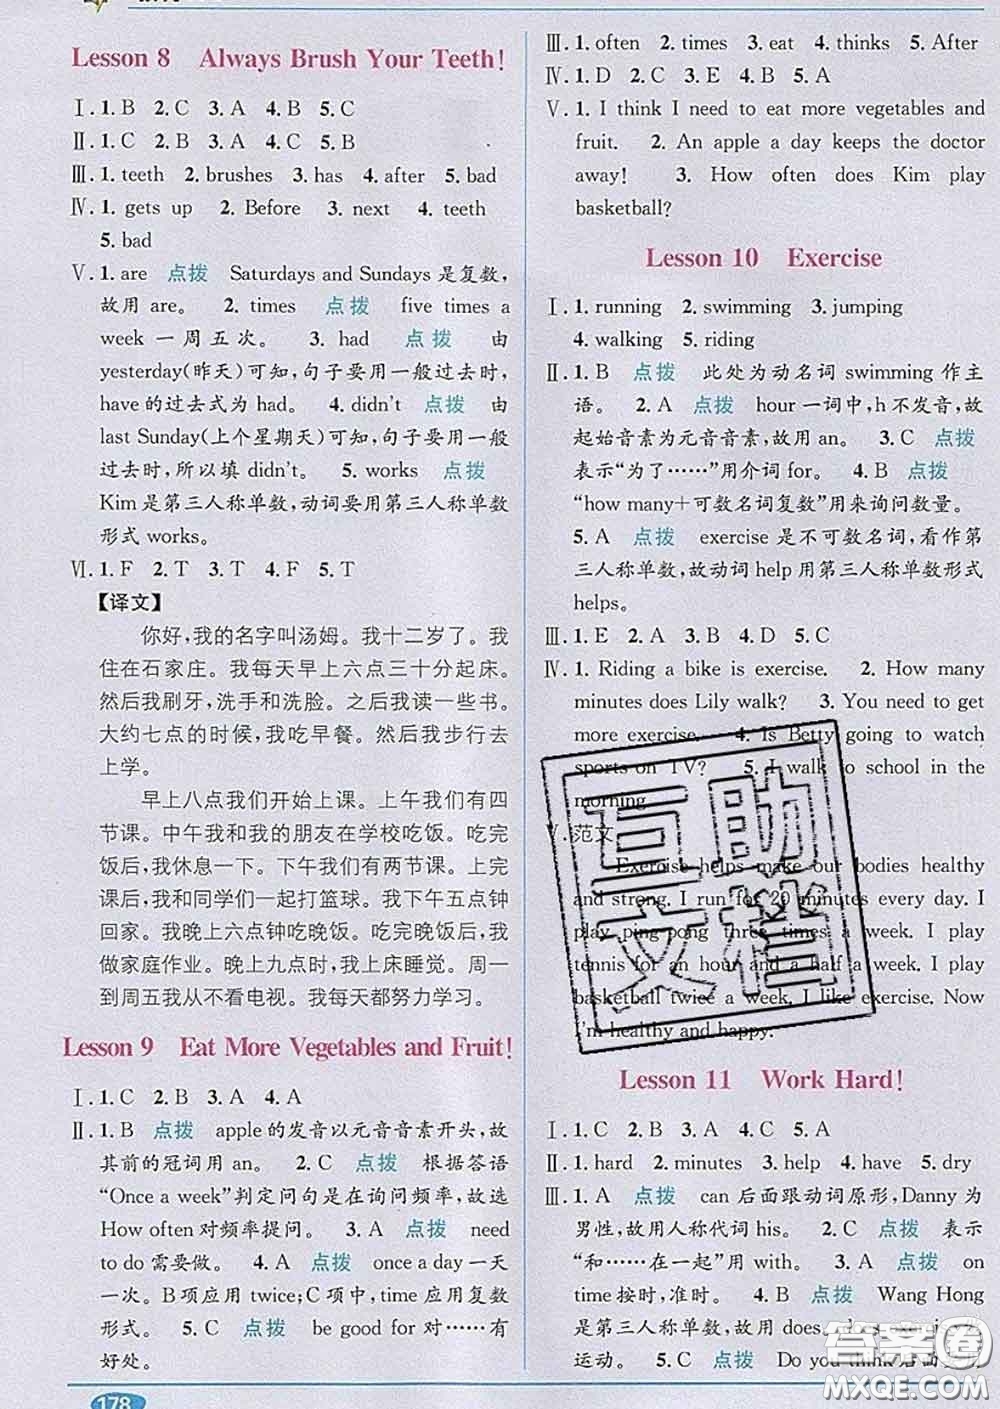 Lesson 8 Always Brush Your Teeth!
Ⅰ. 1. B 2. C 3. A 4. B 5. C
Ⅱ. 1. C 2. B 3. A 4. C 5. B
Ⅲ. 1. teeth 2. brushes 3. has 4. after 5. bad
Ⅳ. 1. gets up 2. Before 3. next 4. teeth
5. bad
Ⅴ. 1. are 点拨 Saturdays and Sundays 是复数,
故用 are。 2. times 点拨 five times a
week 一周五次。 3. had 点拨 由
yesterday(昨天)可知,句子要用一般过去时,
have 的过去式为 had。 4. didn't 点拨 由
last Sunday(上个星期天)可知,句子要用一般
过去时,所以填 didn't。 5. works 点拨
Kim 是第三人称单数,动词要用第三人称单数
形式 works。
Ⅵ. 1. F 2. T 3. T 4. F 5. T
【译文】
你好,我的名字叫汤姆。我十二岁了。我
住在石家庄。我每天早上六点三十分起床。
然后我刷牙,洗手和洗脸。之后我读一些书。
大约七点的时候,我吃早餐。然后我步行去
上学。
早上八点我们开始上课。上午我们有四
节课。中午我和我的朋友在学校吃饭。吃完
饭后,我休息一下。下午我们有两节课。上完
课后,我和同学们一起打篮球。我下午五点钟
回家。我晚上六点钟吃晚饭。吃完晚饭后,我
做家庭作业。晚上九点时,我上床睡觉。周一
到周五我从不看电视。我每天都努力学习。
Lesson 9 Eat More Vegetables and Fruit!
Ⅰ. 1. C 2. B 3. A 4. A
Ⅱ. 1. B 点拨 apple 的发音以元音音素开头,故
其前的冠词用 an。 2. C 点拨 根据答语
“Once a week”判定问句是在询问频率,故选
How often 对频率提问。 3. A 点拨 need
to do 需要做。 4. A 点拨 once a day 一天
一次。B 项应用 twice;C 项中,time 应用复数
形式。 5. C 点拨 be good for 对……有
好处。
178
Ⅲ. 1. often 2. times 3. eat 4. thinks 5. After
Ⅳ. 1. D 2. C 3. E 4. B 5. A
Ⅴ. 1. I think I need to eat more vegetables and
fruit. 2. An apple a day keeps the doctor
away! 3. How often does Kim play
basketball?
Lesson 10 Exercise
Ⅰ. 1. running 2. swimming 3. jumping
4. walking 5. riding
Ⅱ. 1. B 点拨 此处为动名词 swimming 作主
语。 2. A 点拨 hour 一词中,h 不发音,故
起始音素为元音音素,故用 an。 3. C 点拨
表示“为了……”用介词 for。 4. B 点拨
“how many+可数名词复数”用来询问数量。
5. A 点拨 exercise 是不可数名词,看作第
三人称单数,故动词 help 用第三人称单数形式
helps。
Ⅲ. 1. E 2. A 3. B 4. D 5. C
Ⅳ. 1. Riding a bike is exercise. 2. How many
minutes does Lily walk? 3. You need to get
more exercise. 4. Is Betty going to watch
sports on TV? 5. I walk to school in the
morning.
Ⅴ. 范文
Exercise helps make our bodies healthy
and strong. I run for 20 minutes every day. I
play ping-pong three times a week. I play
tennis for an hour and a half a week. I play
basketball twice a week. I like exercise. Now
I'm healthy and happy.
互助文档
Lesson 11 Work Hard!
Ⅰ. 1. C 2. B 3. A 4. C 5. A
Ⅱ. 1. hard 2. minutes 3. help 4. have 5. dry
Ⅲ. 1. A 点拨 can 后面跟动词原形,Danny 为
男性,故用人称代词 his。 2. C 点拨 表示
“和……在一起”用 with。 3. A 点拨 on
time 按时,准时。 4. B 点拨 Wang Hong
是第三人称单数,故用 does, does exercise 做
运动。 5. C 点拨 Do you think 后面
答案圈
MXQE.COM